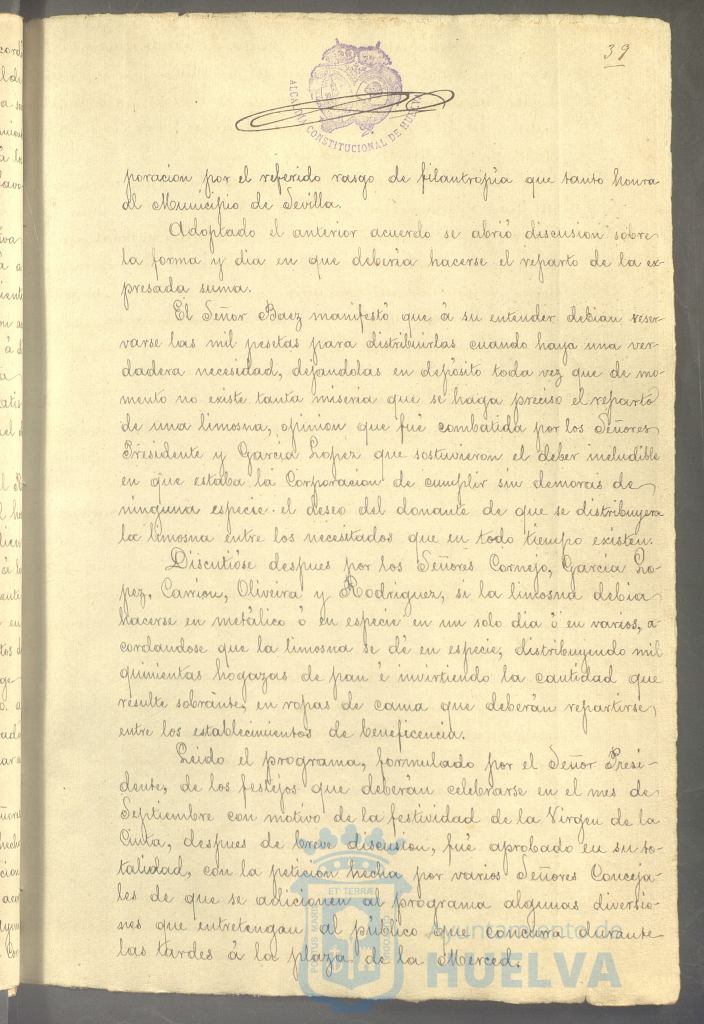 39
ALCALDÍA CONSTITUCIONAL DE HUELVA
poracion por el referido rasgo de filantropía que tanto honra
al Municipio de Sevilla.
Adoptado el anterior acuerdo se abrió discusion sobre
la forma y dia en que debería hacerse el reparto de la ex-
presada suma.
El Señor Baez manifestó que á su entender debian reser-
varse las mil pesetas para distribuirlas cuando haya una ver-
dadera necesidad, dejandolas en depósito toda vez que de mo-
mento no existe tanta miseria que se haga preciso el reparto
de una limosna, opinion que fué combatida por los Señores
Presidente y Garcia Lopez que sostuvieron el deber ineludible
en que estaba la Corporacion de cumplir sin demoras de
ninguna especie el deseo del donante de que se distribuyera
la limosna entre los necesitados que en todo tiempo existen.
Discutióse despues por los Señores Cornejo, Garcia Lo-
pez, Carrion, Oliveira y Rodriguez, si la limosna debia
hacerse en metálico ó en especie en un solo dia ó en varios, a-
cordandose que la limosna se dé en especie, distribuyendo mil
quinientas hogazas de pan é invirtiendo la cantidad que
resulte sobrante, en ropas de cama que deberán repartirse
entre los establecimientos de beneficencia.
Leido el programa, formulado por el Señor Presi-
dente, de los festejos que deberán celebrarse en el mes de
Septiembre con motivo de la festividad de la Virgen de la
Cinta, despues de breve discusion, fué aprobado en su to-
talidad, con la peticion hecha por varios Señores Conceja-
les de que se adicionen al programa algunas diversio-
nes que entretengan al público que concurra durante
las tardes á la plaza de la Merced.
PORTUS MARIS ET TERRÆ CUSTODIA
Ayuntamiento de
HUELVA